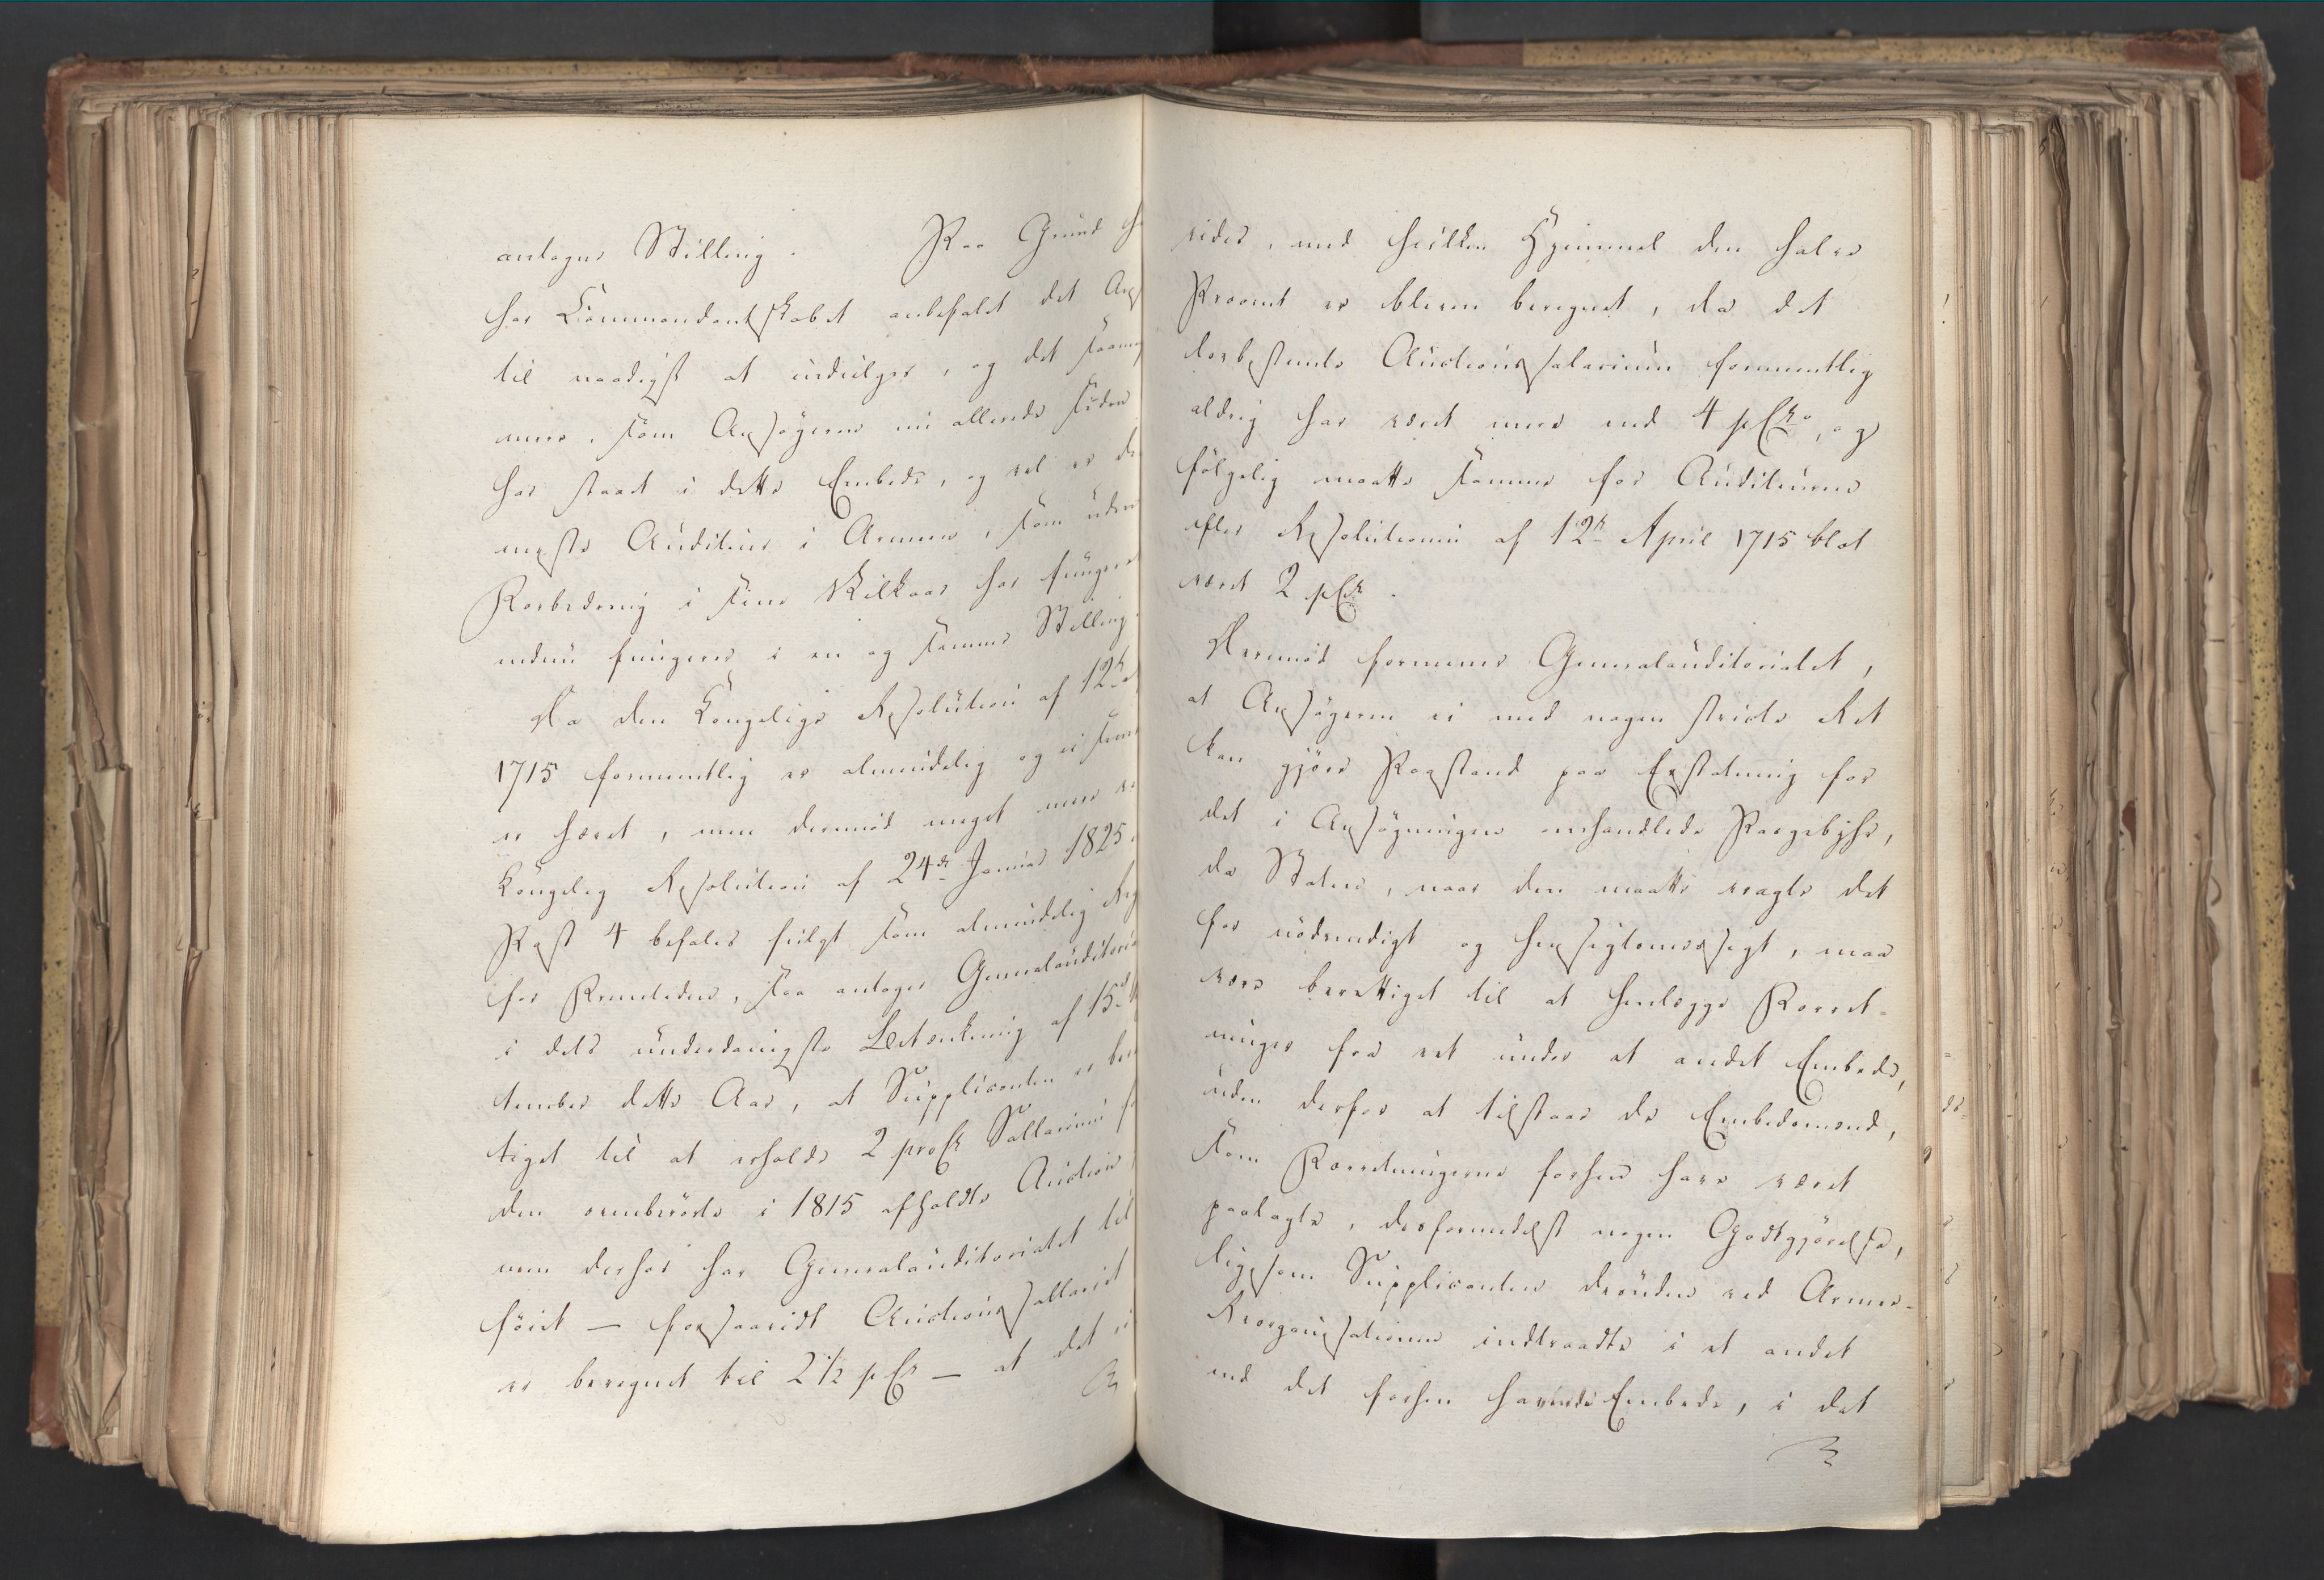 antagne Stilling. Paa Grund
har Commandantskabet anbefalet det
til naadigst at indvilges, og det saame
mere, som Ansøgeren nu allerede siden
har staaet i dette Embede, og vel er
neste Auditeur i Armeen, som uden
Forbedring i sine Vilkaar har fungeret
endnu fungerer i en og samme Stilling.
Da den Kongelige Resolution af 12te
1715 formeentlig er almindelig og ei
er hævet, men derimod meget mere
Kongelig Resolution af 24de Januar 1825
Post 4 befales fulgt som almindelig
for Fremtiden, saa antager Generalauditoria
i dets underdanigste Betænkning af 15de
tember dette Aar, at Supplicanten er
tiget til at erholde 2 proCt Sallarium
den ommhrørte i 1815 afholdte Auction
men derhos har Generalauditoriatet til
føiet — forsaavidt Auctionssallariet
er beregnet til 2 1/2 pCt — at det
vides, med hvilken Hjemmel den halve
Procent er bleven beregnet, da det
lovbestemte Auctionssalarium formeentlig
aldrig har været mere end 4 pCto, og
følgelig maatte samme for Auditeurene
efter Resolutionen af 12te April 1715 blot
været 2 pCt.
Derimod formener Generalauditoriatet,
at Ansøgeren ei med nogen stricte Ret
kan gjøre Paastand paa Erstatning for
det i Ansøgningen omhandlede Paagebyhr,
da Staten, naar den maatte eragte det
for nødvendigt og hensigtsmæssigt, maa
være berettiget til at henlægge Forret-
ninger fra eet under et andet Embede,
uden derfor at tilstaae de Embedsmænd,
som Forretningerne forhen have været
paalagte, desformedelst nogen Godtgjørelse,
ligesom Supplicanten desuden ved Armee-
Reorganisationen indtraadte i et andet
end det forhen havende Embede, i det